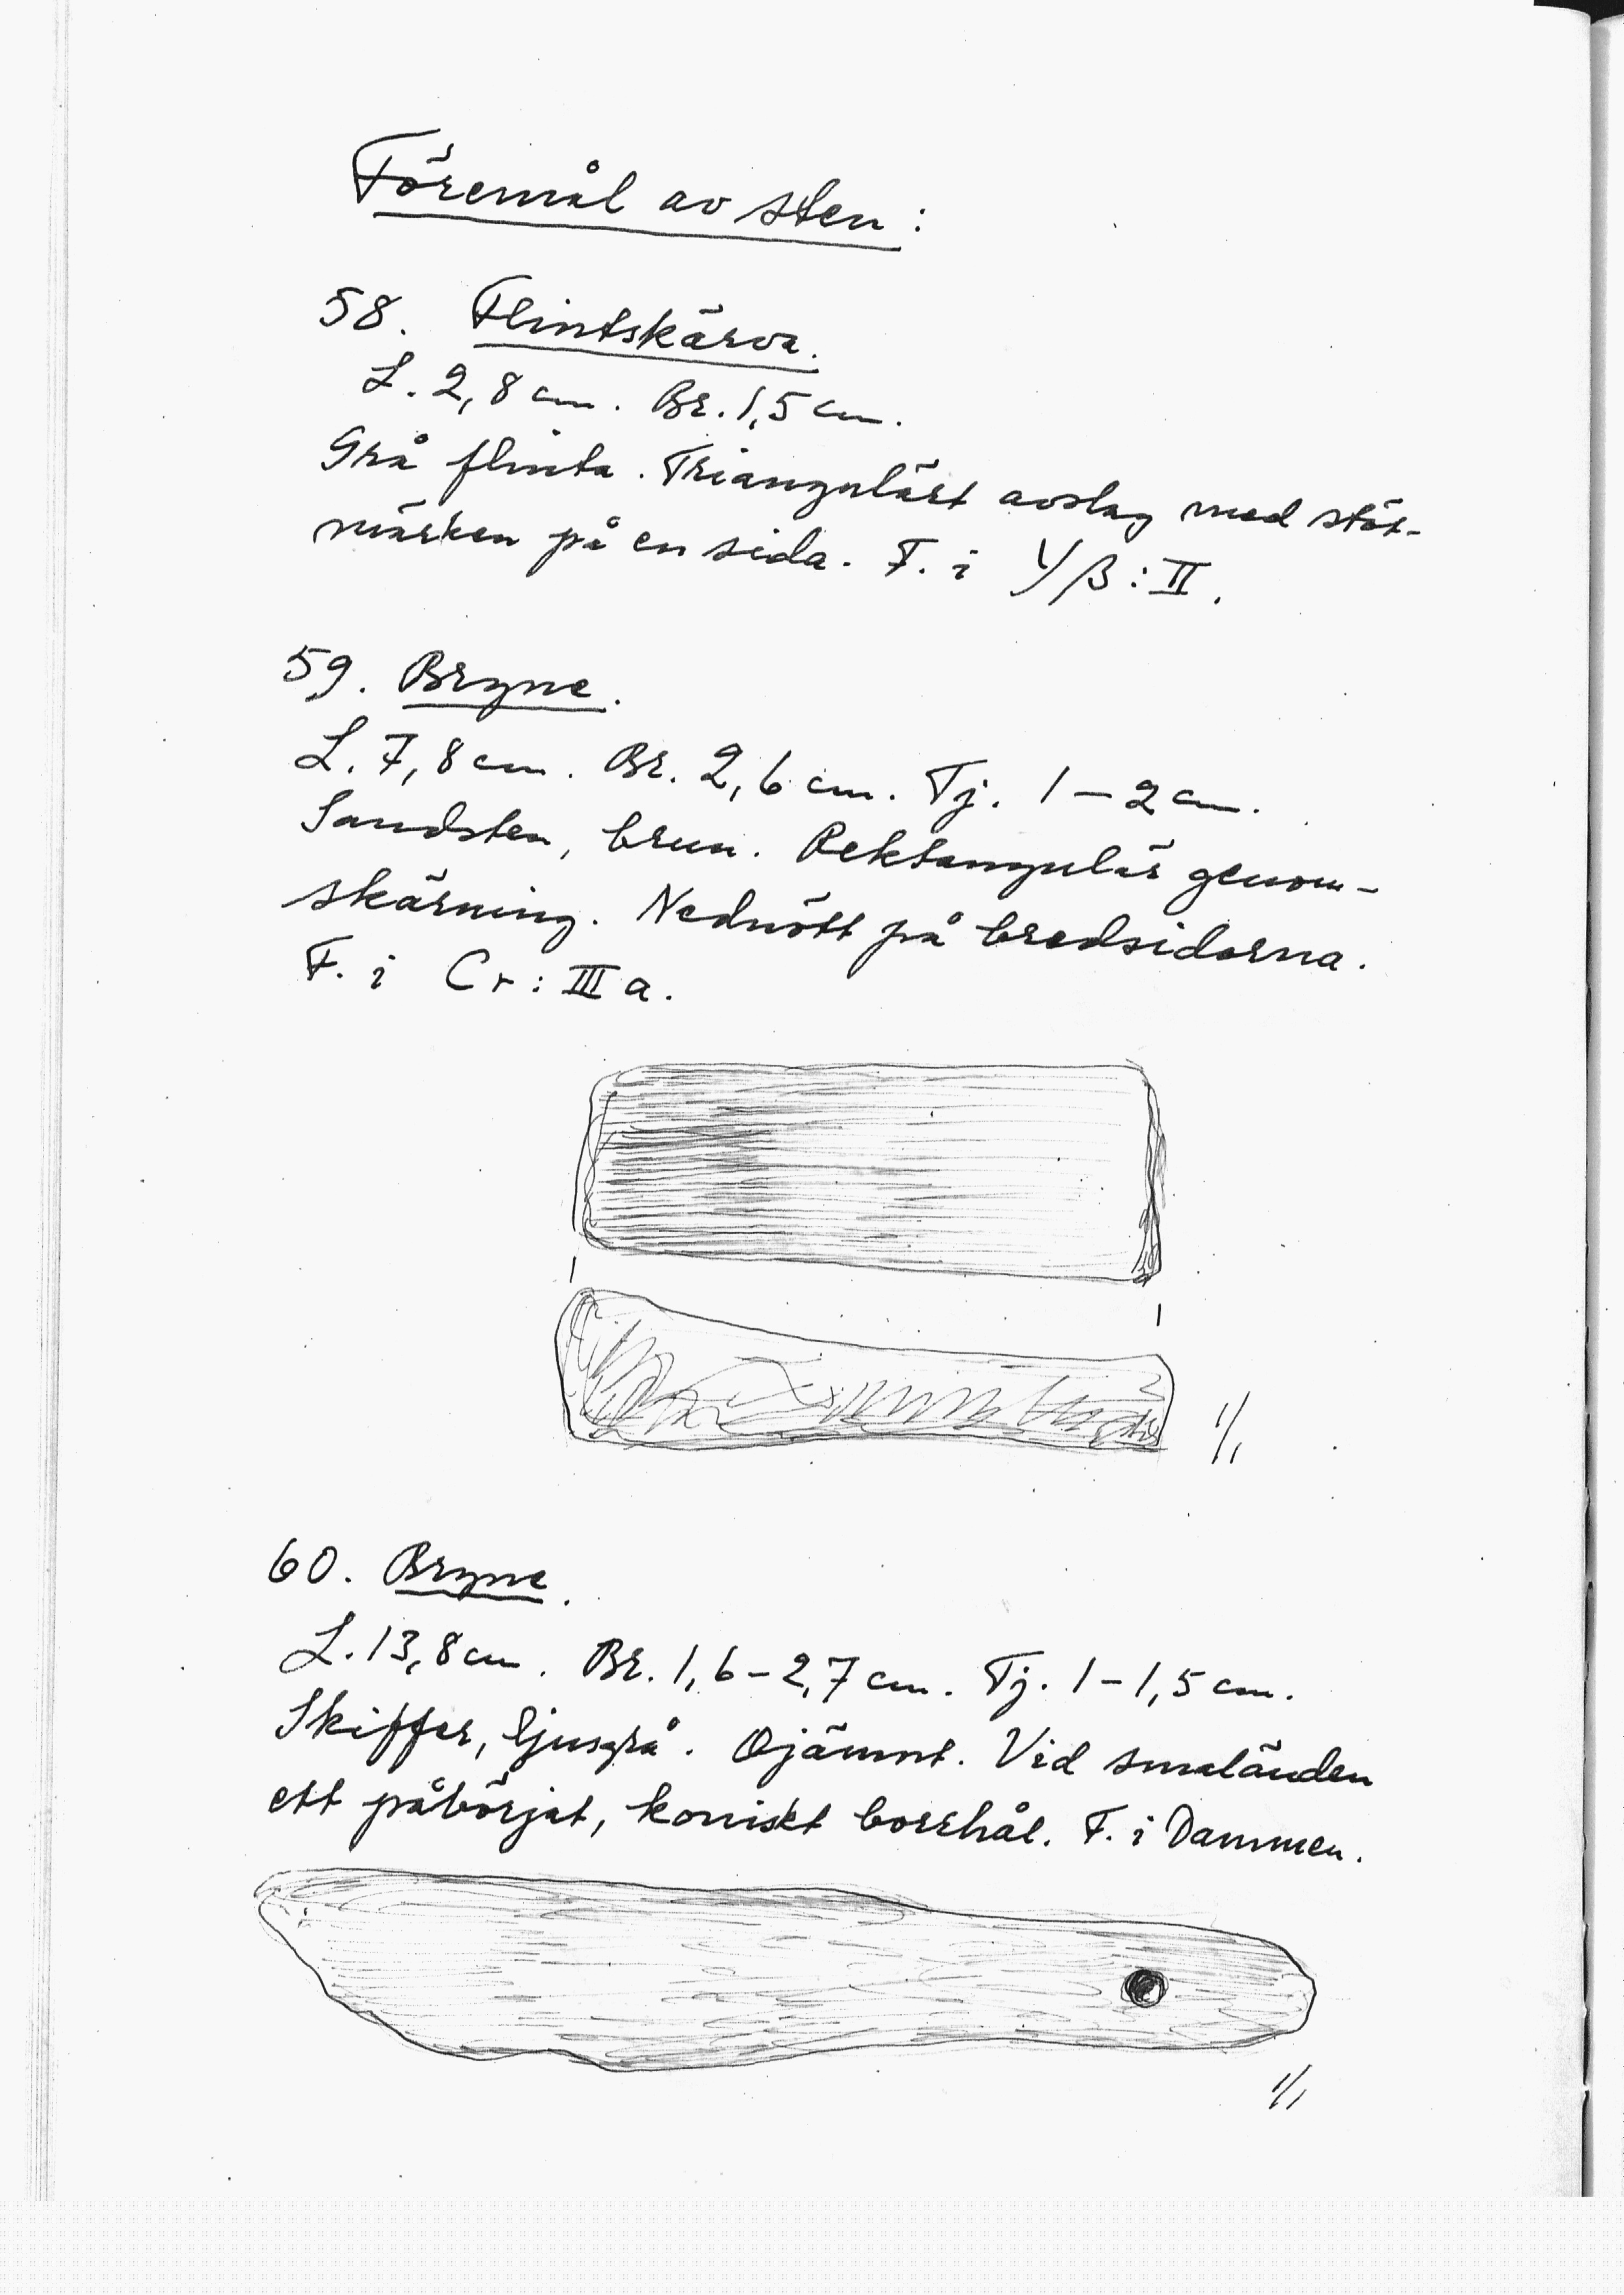 Föremål av sten:
58. Flintskärva.
L. 2,8 cm. Br. 1,5 cm.
Grå flinta. Triangulärt avslag med stöt-
märken på en sida. F. i Y/β:II.
59. Bryne.
L. 7,8 cm. Br. 2,6 cm. Tj. 1–2 cm.
Sandsten, brun. Rektangulär genom-
skärning. Nednött på bredsidorna.
F. i Cr:III a.
1/1
60. Bryne.
L. 13,8 cm. Br. 1,6–2,7 cm. Tj. 1–1,5 cm.
Skiffer, ljusgrå. Ojämnt. Vid smaländen
ett påbörjat, koniskt borrhål. F. i Dammen.
1/1